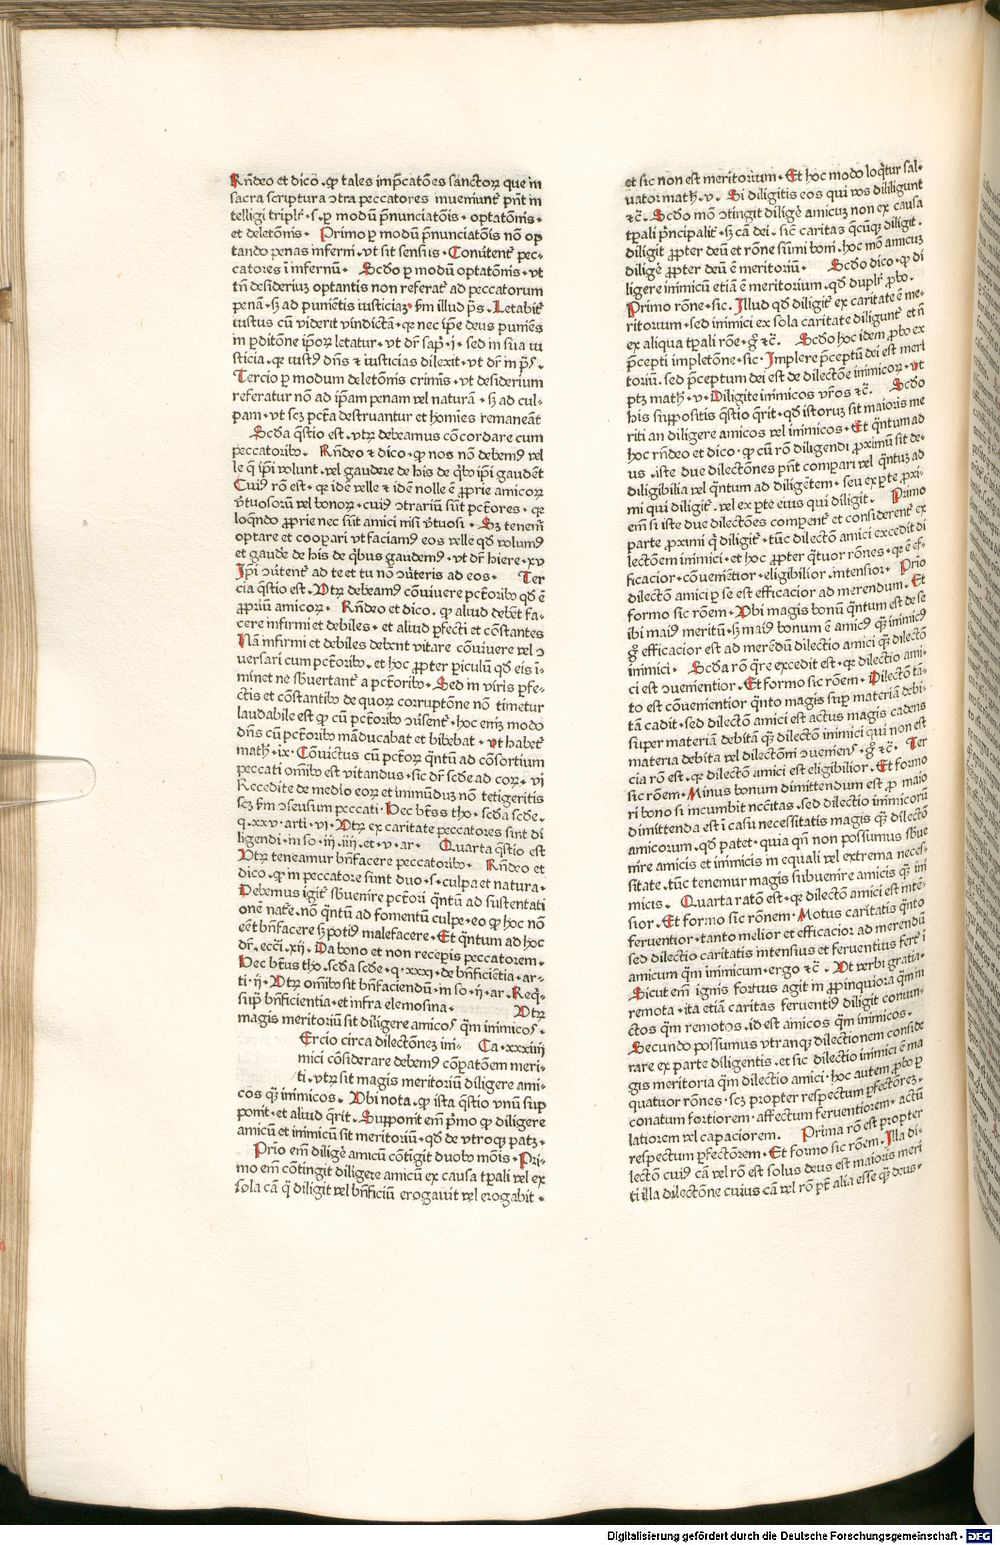 Rñdeo et dico . ꝙ tales imp̃catões sanctoꝝ que in
sacra scriptura ↄtra peccatores inueniunt᷑ pñt in
telligi triplr̃ . s . ꝑ modũ p̃nunciatõis . optatõnis .
et deletõnis . Primo ꝑ modũ p̃nunciatõis nõ op
tando penas inferni . vt sit sensus . Conũtent᷑ pec-
catores ĩ infernũ . Scd̃o ꝑ modũ optatõnis . vt
tñ desideriuꝫ optantis non referat᷑ ad peccatorum
penã . sꝫ ad puniẽtis iusticiaꝫ . ẜm illud p̃s . Letabit᷑
iustus cũ viderit vindictã . qꝛ nec ip̃e deus puniẽs
in ꝑditõne ip̃oꝝ letatur . vt dr̃ sap̃ . i . sed in sua iu
sticia . qꝛ iustꝰ dñs ⁊ iusticias dilexit . vt dr̃ in p̃s .
Tercio ꝑ modum deletõnis crimis . vt desiderium
referatur nõ ad ip̃am penam vel naturã . sꝫ ad cul-
pam . vt scꝫ pctã destruantur et homies remaneãt
Scd̃a q̃stio est . vtꝝ debeamus cõcordare cum
peccatoribꝰ . Rñdeo ⁊ dico . ꝙ nos nõ debemꝰ vel
le q̃ ip̃i volunt . vel gaudere de his de q̃bꝰ ip̃i gaudẽt
Cuiꝰ rõ est . qꝛ idẽ velle ⁊ idẽ nolle ẽ ꝓprie amicoꝝ
v̈tuosorũ vel bonoꝝ . cuiꝰ ↄtrariũ sũt pctores . qꝛ
loq̃ndo ꝓprie nec sũt amici nisi v̈tuosi . Sꝫ tenem̃
optare et coopari vt faciamꝰ eos velle qd̃ volumꝰ
et gaudẽ de his de q̃bus gaudemꝰ . vt dr̃ hiere . xv
Ip̃i ↄũtent᷑ ad te et tu nõ ↄũteris ad eos . Ter
cia q̃stio est . Vtꝝ debeamꝰ cõuiuere pctõribꝰ qd̃ ẽ
ꝓpriũ amicoꝝ . Rñdeo et dico . ꝙ aliud debẽt fa-
cere infirmi et debiles . et aliud ꝑfecti et cõstantes
Nã infirmi et debiles debent vitare cõuiuere vel ↄ
uersari cum pctõribꝰ . et hoc ꝓpter piculũ qd̃ eis ĩ-
minet ne sb̃uertant᷑ a pctõribꝰ . Sed in viris ꝑfe-
ctis et cõstantibꝰ de quoꝝ corruptõne nõ timetur
laudabile est ꝙ cũ pctõribꝰ ↄũsent᷑ . hoc eniꝫ modo
dñs cũ pctõribꝰ mãducabat et bibebat . vt habet᷑
math̃ . ix . Cõuictus cũ pctoꝝ q̃ntũ ad cõsortium
peccati omĩbꝰ est vitandus . sic dr̃ scd̃e ad coꝝ . vi
Recedite de medio eoꝝ et inmũduꝫ nõ tetigeritis
scꝫ ẜm ↄsensum peccati . Hec bt̃ss tho . scd̃a scd̃e .
q . xxv . arti . vi . Vtꝝ ex caritate peccatores sint di
ligendi . in so . iij . iiij . et . v . ar . Quarta q̃stio est
Vtꝝ teneamur bñfacere peccatoribꝰ . Rñdeo et
dico . ꝙ in peccatore sunt duo . s . culpa et natura .
Debemus igit᷑ sb̃uenire pctõri q̃ntũ ad sustentati
onẽ nat̃e . nõ q̃ntũ ad fomentũ culpe . eo ꝙ hoc nõ
eẽt bñfacere sꝫ potiꝰ malefacere . Et q̃ntum ad hoc
dr̃ . ecci . xij . Da bono et non recepis peccatorem .
Hec bt̃us tho . scd̃a scd̃e . q . xxxi . de bñficiẽtia . ar-
ti . ij . Vtꝝ omĩbꝰ sit bñfaciendũ . in so . ij . ar . Req̃ .
sup̃ bñficientia . et infra elemosina . Vtꝝ
magis meritoriũ sit diligere amicos q̃m inimicos .
Ercio circa dilectõneꝫ ini- Ca . xxxiiij
mici cõsiderare debemꝰ cõpatõem meri-
ti . vtꝝ sit magis meritoriũ diligere ami-
cos q̃ꝫ inimicos . Vbi nota . ꝙ ista q̃stio vnũ sup
ponit . et aliud q̃rit . Supponit em̃ p̃mo ꝙ diligere
amicũ et inimicũ sit meritoriũ . qd̃ de vtroqꝫ patꝫ .
Prĩo em̃ diligẽ amicũ cõtĩgit duobꝰ mõis . Pri-
mo em̃ cõtingit diligere amicũ ex causa tp̃ali vel ex
sola cã q̃ diligit vel bñficiũ erogauit vel erogabit .
et sic non est meritorium . Et hoc modo loq̃tur sal-
uator math̃ . v . Si diligitis eos qui vos diligunt
⁊c̃ . Scd̃o mõ ↄtingit diligẽ amicuꝫ non ex causa
tp̃ali p̃ncipalit᷑ . sꝫ cã dei . sic̃ caritas q̃cũqꝫ diligit .
diligit ꝓpter deũ et rõne sum̃i boni . hoc mõ amicuꝫ
diligẽ ꝓpter deũ ẽ meritoriũ . Scd̃o dico . ꝙ di
ligere inimicũ etiã ẽ meritorium . qd̃ duplr̃ ꝓbo .
Primo rõne . sic . Illud qd̃ diligit᷑ ex caritate ẽ me-
ritorium . sed inimici ex sola caritate diligunt᷑ et ñ
ex aliqua tp̃ali rõe . g̊ ⁊c̃ . Scd̃o hoc idem ꝓbo ex
p̃cepti impletõne . sic . Implere p̃ceptũ dei est meri
toriũ . sed p̃ceptum dei est de dilectõe inimicoꝝ . vt
ptꝫ math̃ . v . Diligite inimicos vr̃os ⁊c̃ . Scd̃o
his suppositis q̃stio q̃rit . qd̃ istoruꝫ sit maioris me
riti an diligere amicos vel inimicos . Et q̃ntum ad
hoc rñdeo et dico . ꝙ cũ rõ diligendi ꝓximũ sit de-
us . iste due dilectõnes pñt compari vel q̃ntuꝫ ad
diligibilia vel q̃ntum ad diligẽtem . seu ex ꝑte ꝓxi-
mi qui diligit᷑ . vel ex ꝑte eius qui diligit . Primo
em̃ si iste due dilectõnes compent᷑ et considerent᷑ ex
parte ꝓximi q̃ diligit᷑ . tũc dilectõ amici excedit di
lectõem inimici . et hoc ꝓpter q̃tuor rõnes . qꝛ ẽ ef-
ficacior . cõueniẽtior . eligibilior . intensior . Prĩo
dilectõ amici ꝑ se est efficacior ad merendum . Et
formo sic rõem . Vbi magis bonũ q̃ntum est de se
ibi maiꝰ meritũ . sꝫ maiꝰ bonum ẽ amicꝰ q̃ꝫ inimicꝰ
g̊ efficacior est ad merẽdũ dilectio amici q̃ꝫ dilectõ
inimici . Scd̃a rõ q̃re excedit est . qꝛ dilectio ami-
ci est ↄuenientior . Et formo sic rõem . Dilectõ tã-
to est cõuenientior q̃nto magis sup̃ materiã debi-
tã cadit . sed dilectõ amici est actus magis cadens
super materiã debitã q̃ꝫ dilectõ inimici qui non est
materia debita vel dilectõni ↄueniens . g̊ ⁊c̃ . Ter
cia rõ est . qꝛ dilectõ amici est eligibilior . Et formo
sic rõem . Minus bonum dimittendum est ꝓ maio
ri bono si incumbit nc̃citas . sed dilectio inimicorũ
dimittenda est ĩ casu necessitatis magis q̃ꝫ dilectõ
amicorum . qd̃ patet . quia qñ non possumus sb̃ue
nire amicis et inimicis in equali vel extrema neces-
sitate . tũc tenemur magis subuenire amicis q̃ꝫ ini
micis . Quarta ratõ est . qꝛ dilectõ amici est intẽ-
sior . Et formo sic̃ rõnem . Motus caritatis q̃nto
feruentior . tanto melior et efficacior ad merendũ
sed dilectio caritatis intensius et feruentius fert᷑ ĩ
amicum q̃m inimicum . ergo ⁊c̃ . Vt verbi gratia .
Sicut em̃ ignis fortius agit in ꝓpinquiora q̃m in
remota . ita etiã caritas feruentiꝰ diligit coniun-
ctos q̃m remotos . id est amicos q̃m inimicos .
Secundo possumus vtranqꝫ dilectionem conside
rare ex parte diligentis . et sic dilectio inimici ẽ ma
gis meritoria q̃m dilectio amici . hoc autem ꝓbo ꝑ
quatuor rõnes . scꝫ propter respectum ꝑfectõreꝫ .
conatum fortiorem . affectum feruentiorem . actũ
latiorem vel capaciorem . Prima rõ est propter
respectum ꝑfectõrem . Et formo sic rõem . Illa di-
lectõ cuiꝰ cã vel rõ est solus deus est maioris meri
ti illa dilectõne cuius cã vel rõ põt alia esse q̃ꝫ deus .
Digitalisierung gefördert durch die Deutsche Forschungsgemeinschaft - DFG